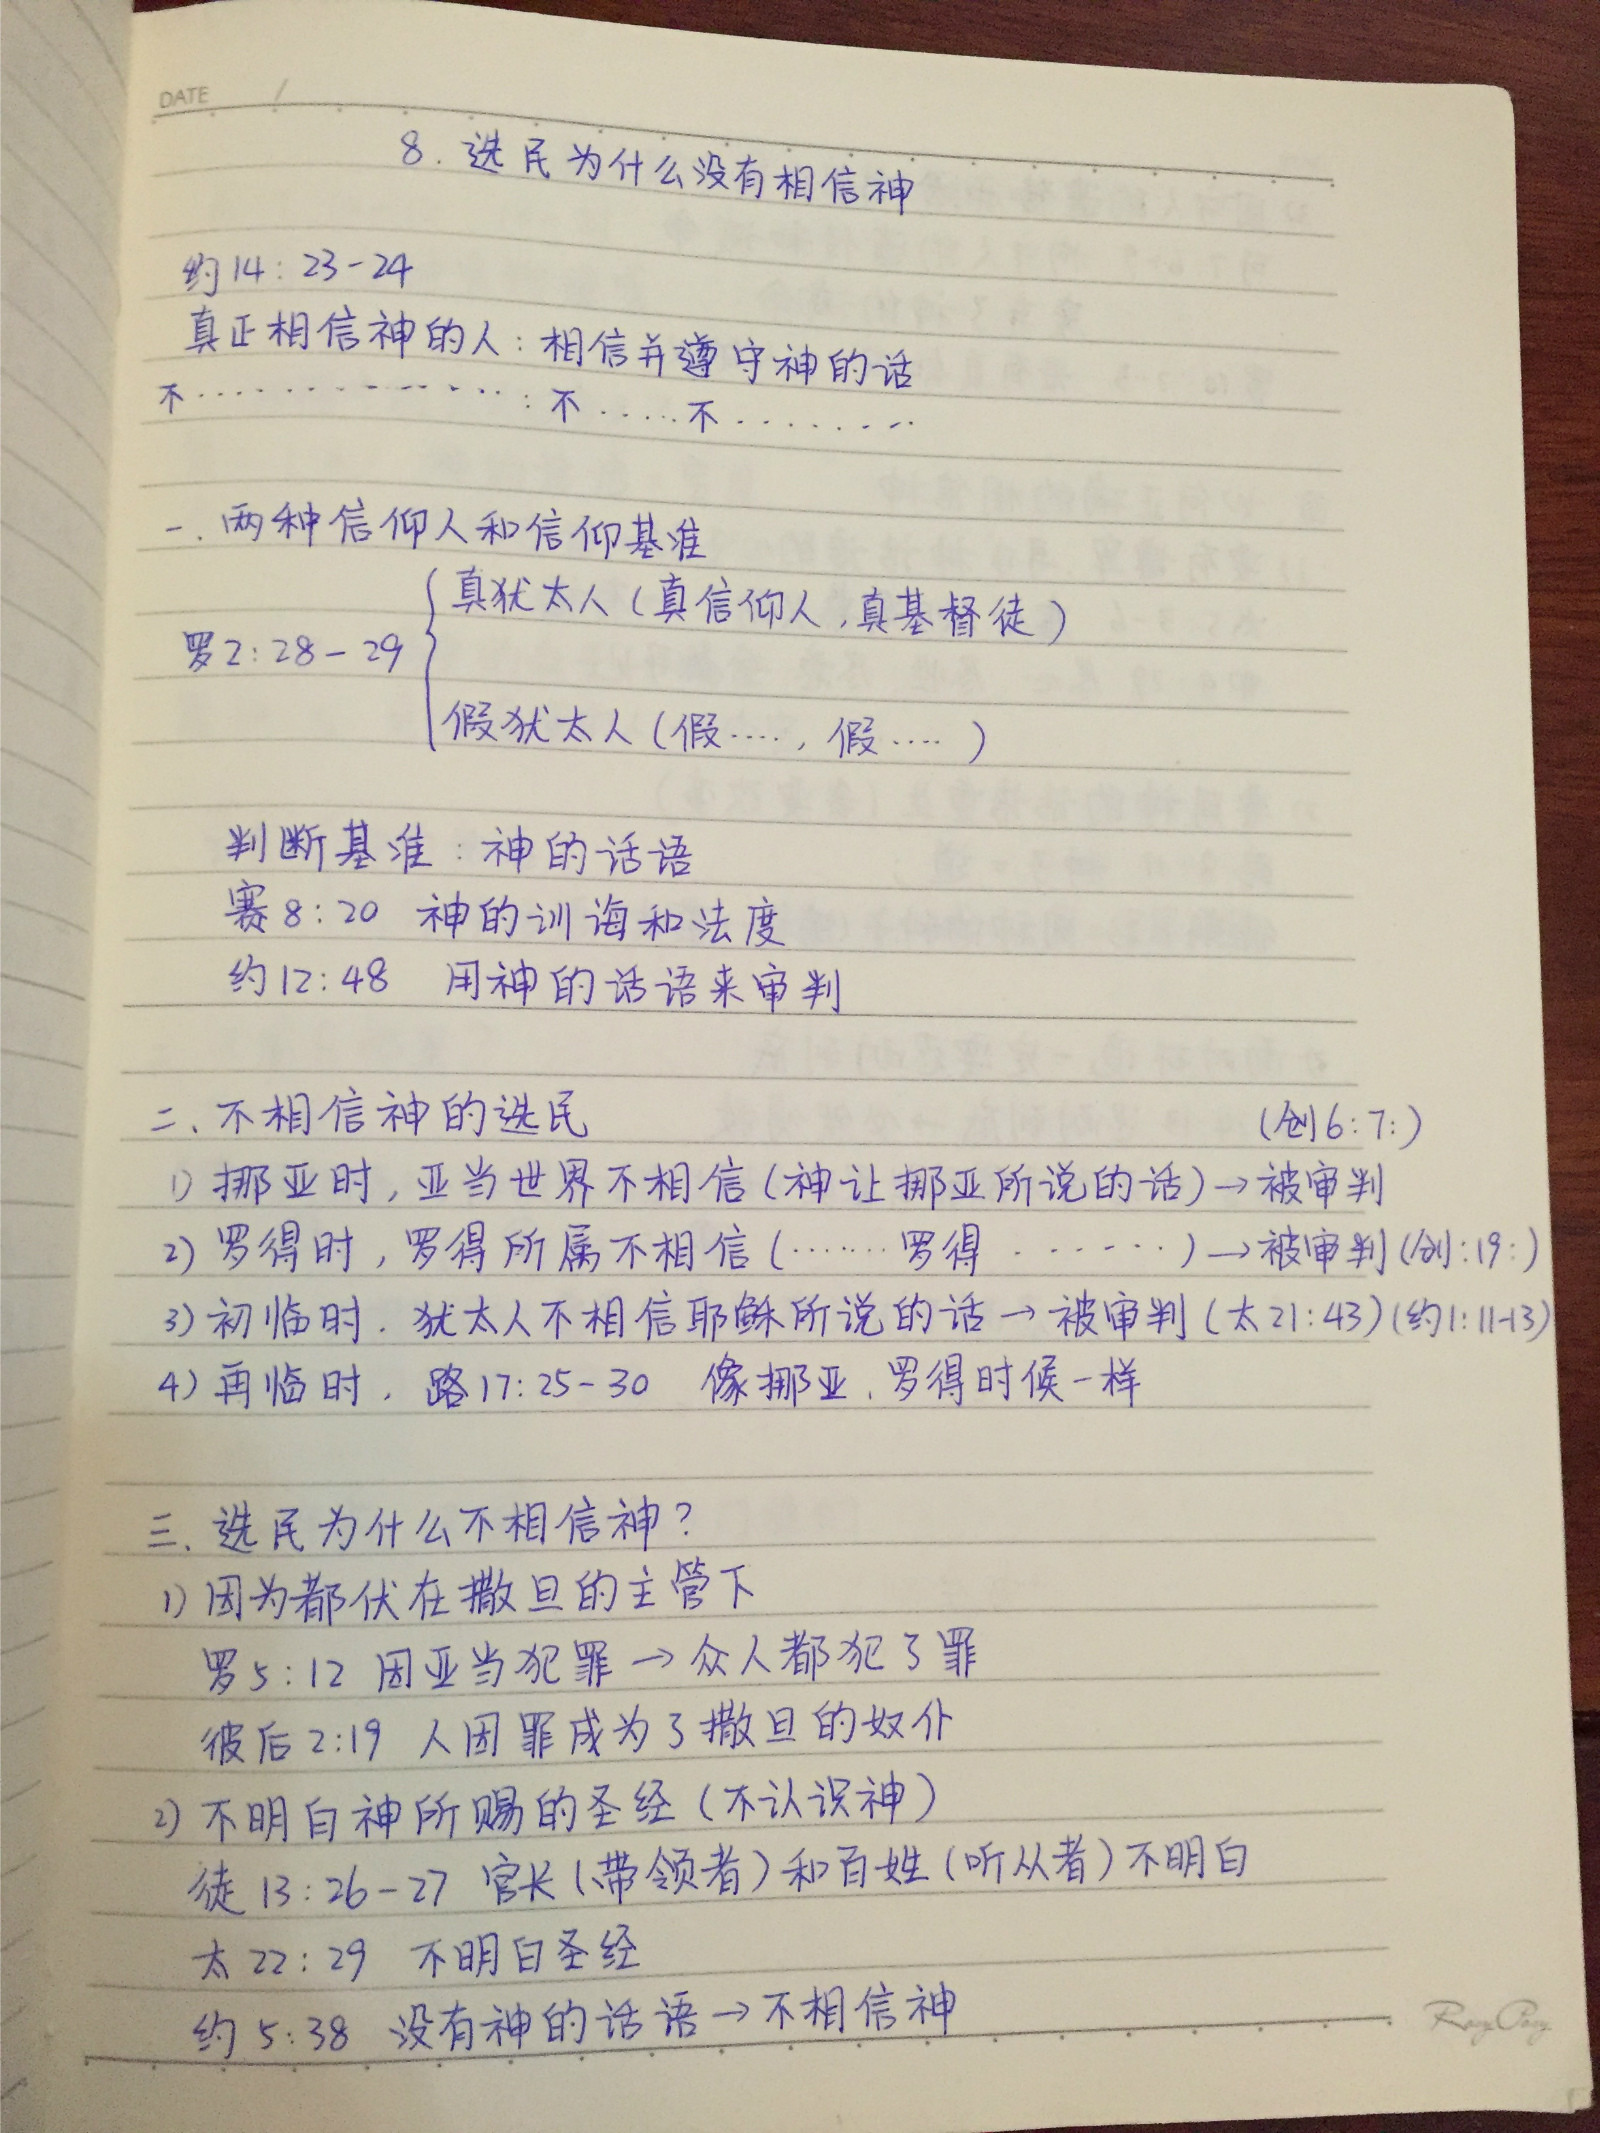 DATE /
8. 选民为什么没有相信神
约14:23-24
真正相信神的人:相信并遵守神的话
不··············:不·····不········
一、两种信仰人和信仰基准
真犹太人(真信仰人,真基督徒)
罗2:28-29
假犹太人(假····,假····)
判断基准:神的话语
赛8:20 神的训诲和法度
约12:48 用神的话语来审判
二、不相信神的选民 (创6:7:)
1)挪亚时,亚当世界不相信(神让挪亚所说的话)→被审判
2)罗得时,罗得所属不相信(·······罗得·······)→被审判(创:19:)
3)初临时.犹太人不相信耶稣所说的话→被审判(太21:43)(约1:11-13)
4)再临时.路17:25-30 像挪亚、罗得时候一样
三、选民为什么不相信神?
1)因为都伏在撒旦的主管下
罗5:12 因亚当犯罪→众人都犯了罪
彼后2:19 人因罪成为了撒旦的奴仆
2)不明白神所赐的圣经(不认识神)
徒13:26-27 官长(带领者)和百姓(听从者)不明白
太22:29 不明白圣经
约5:38 没有神的话语→不相信神